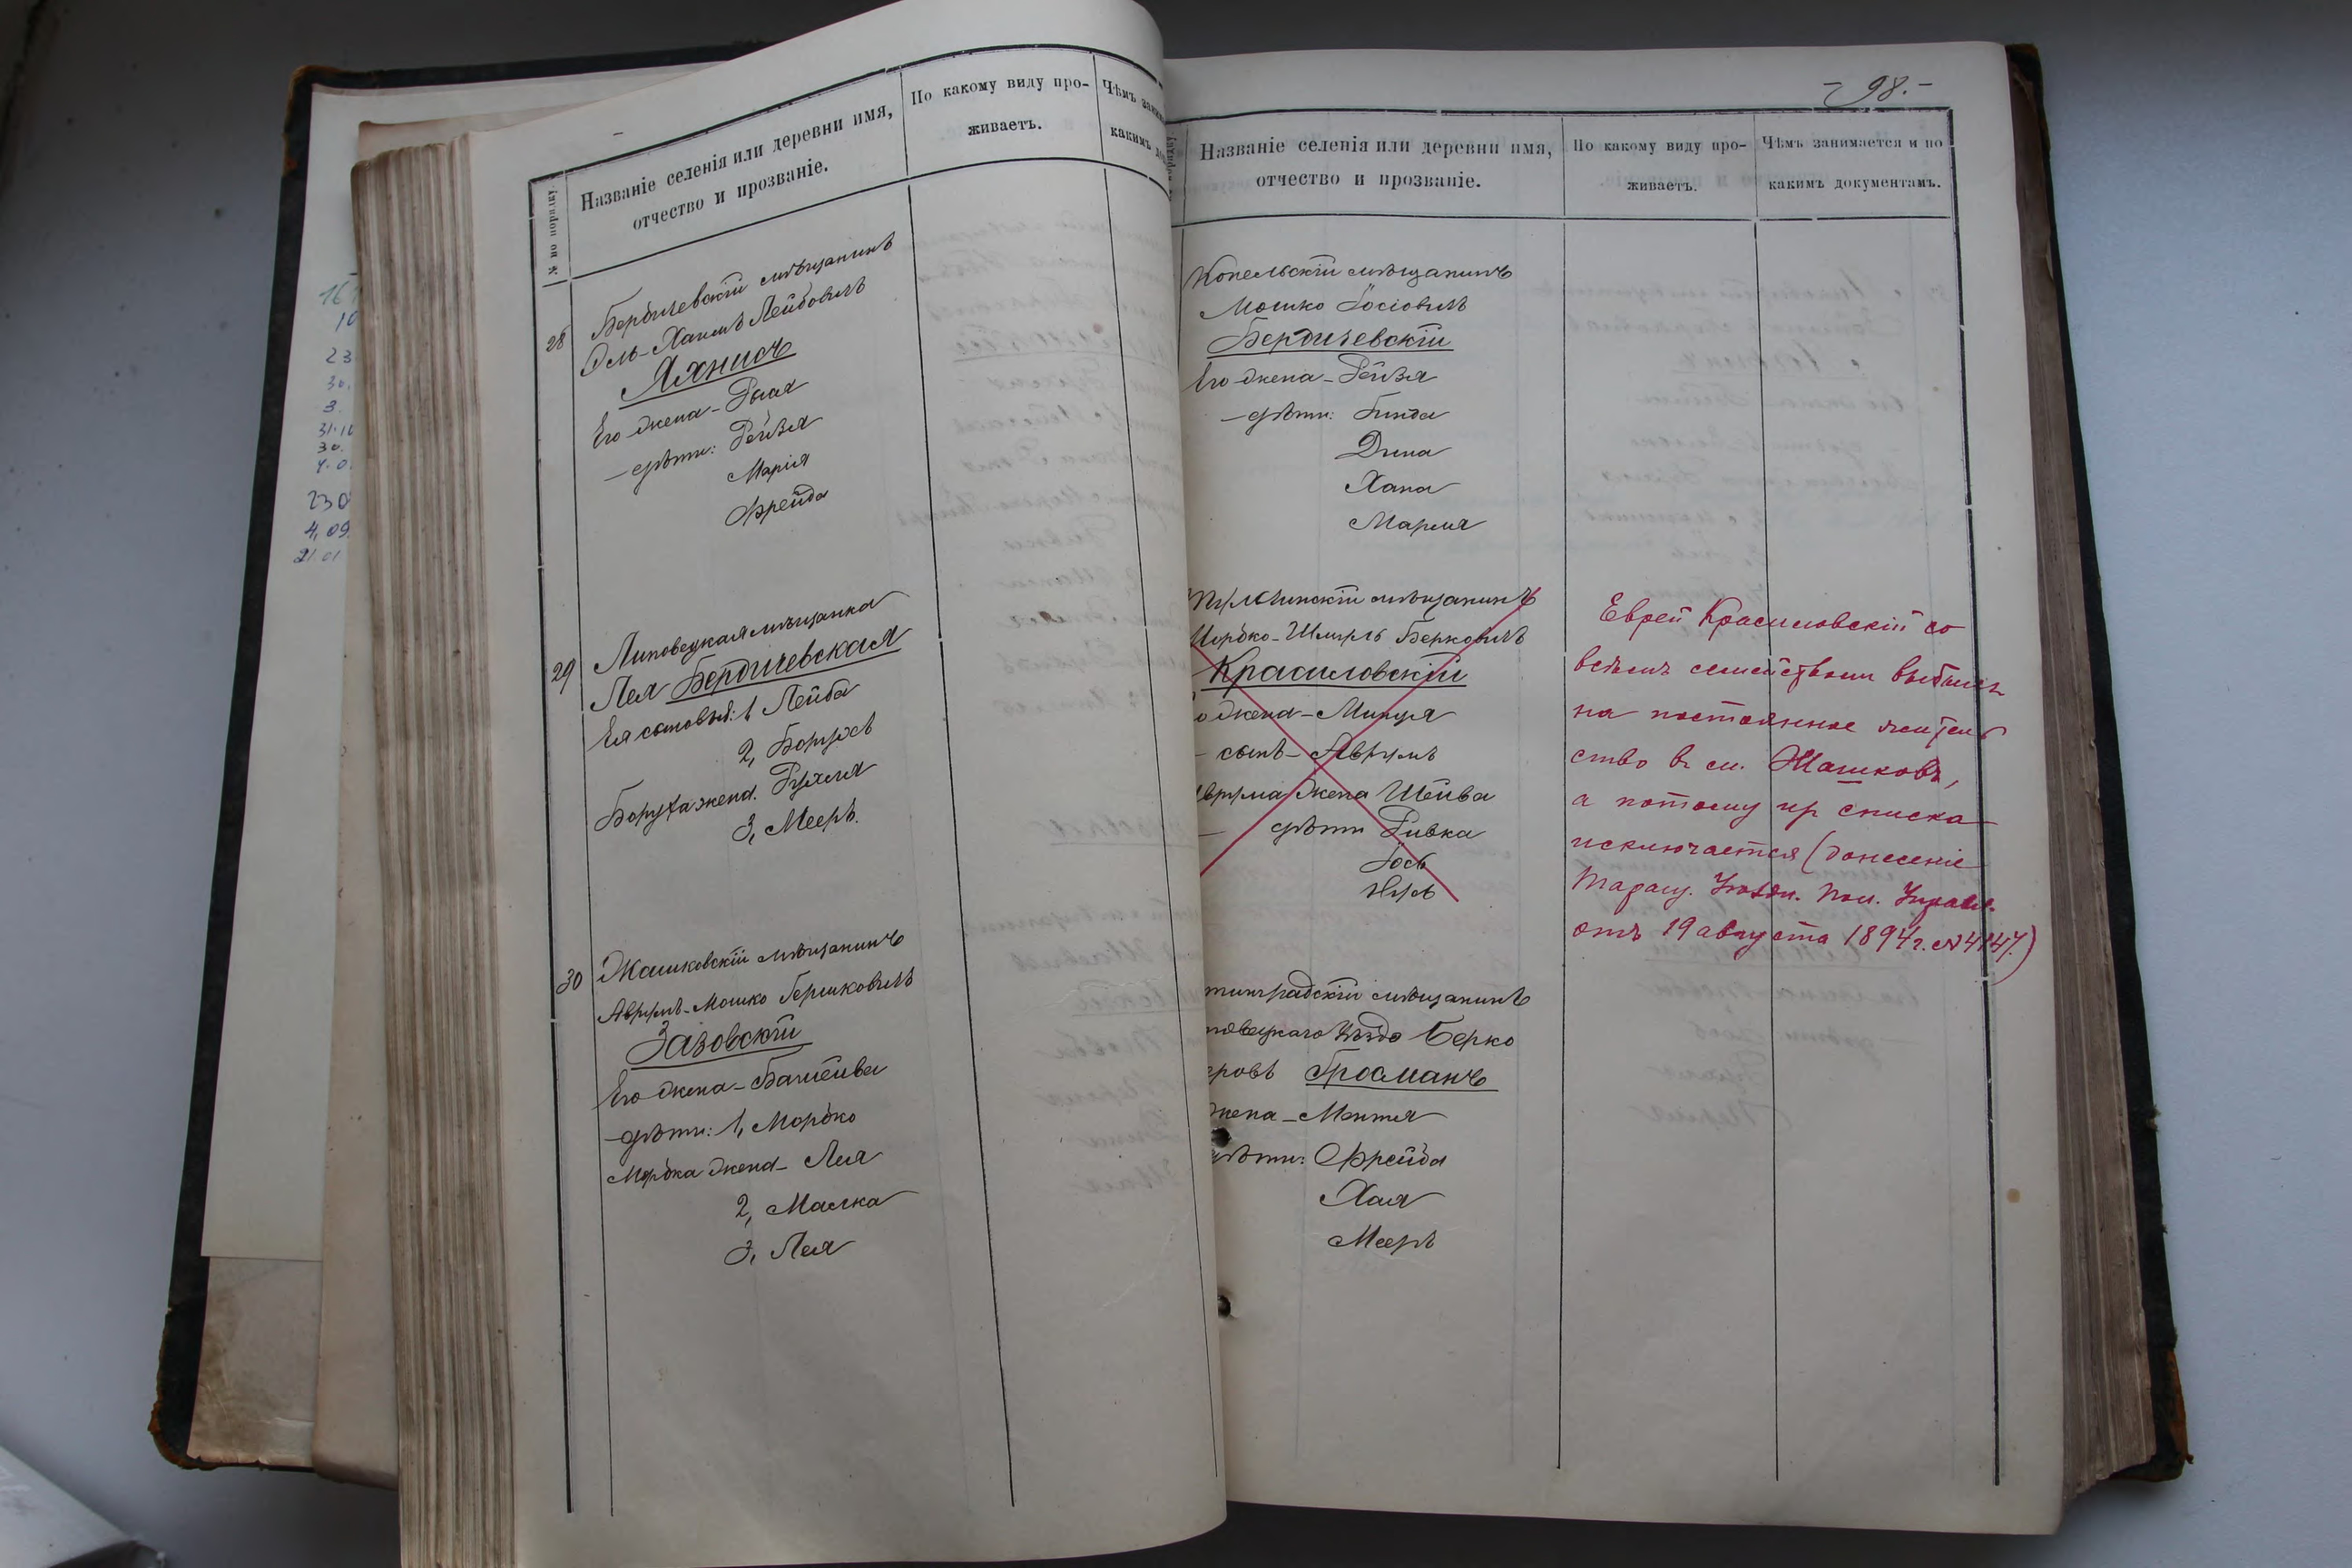 № по порядку
Названіе селенія или деревни имя,
отчество и прозваніе.
По какому виду про-
живаетъ.
Чѣмъ
какимъ
28
Бердичевскій мѣщанинъ
Эль-Хаимъ Лейбовичъ
Яхнисъ
Его жена - Рося
- дѣти: Рейзя
Марія
Фрейда
29
Липовецкая мѣщанка
Лея Бердичевская
Ея сыновья: 1 Лейба
2, Борухъ
Боруха жена. Рухля
3, Мееръ.
30
Жашковскій мѣщанинъ
Аврумъ-Мошко Гершковичъ
Зазовскій
Его жена - Батшейва
- дѣти: 1, Мордко
Мордка жена - Лея
2, Малка
3, Лея
- 98. -
Названіе селенія или деревни имя,
отчество и прозваніе.
По какому виду про-
живаетъ.
Чѣмъ занимается и по
какимъ документамъ.
Конельскій мѣщанинъ
Мошко Іосіовичъ
Бердичевскій
Его жена - Рейзя
- дѣти: Гинда
Дина
Хана
Мария
мѣщанинъ
Мордко-Шмуль Берковичъ
Красиловскій
жена - Минця
- сынъ - Аврумъ
врума жена Шейва
- дѣти Ривка
Іось
Нухъ
Еврей Красиловскій со
всѣмъ семействомъ выбылъ
на постоянное житель
ство в м. Жашковъ,
а потому из списка
исключается (донесеніе
Таращ. Уѣздн. Пол. Управл.
отъ 19 августа 1894 г. № 4147.)
тинградскій мѣщанинъ
повецкаго уѣзда Берко
еровъ Гросманъ
жена - Мантя
дѣти: Фрейда
Хая
Мееръ
23
30.
3.
31.10
30.
4.0
230
4,09.
21.01